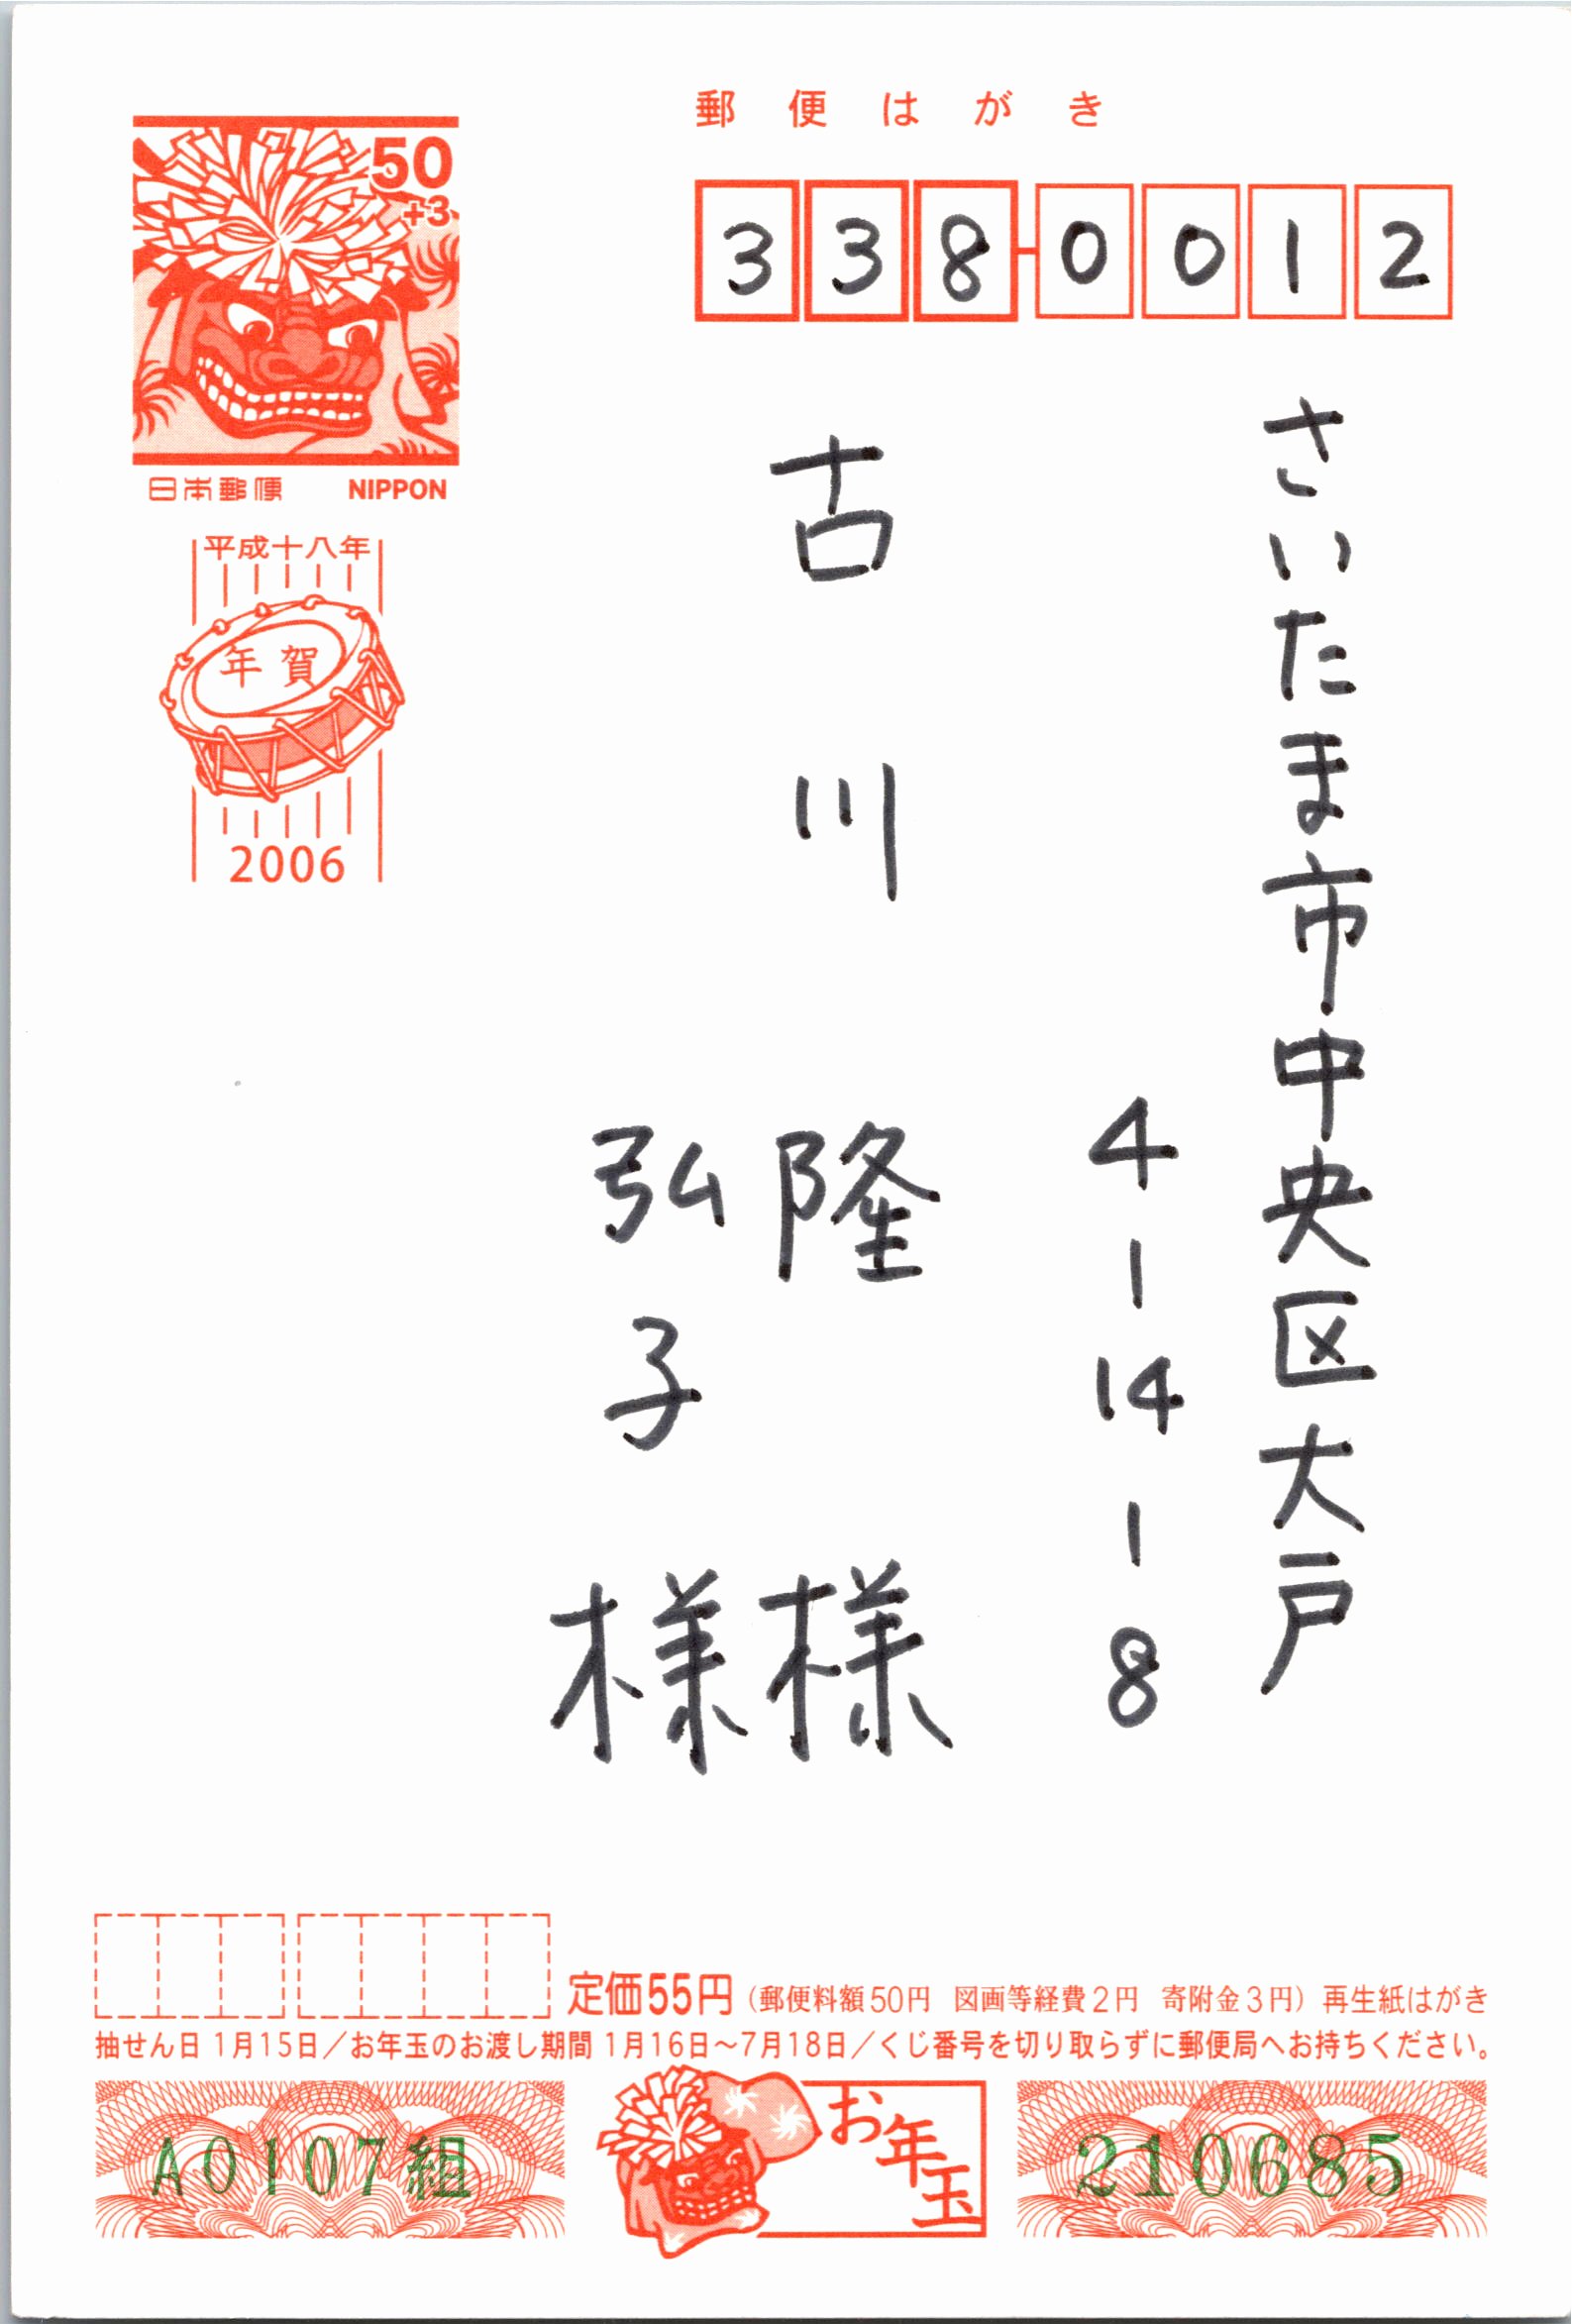 郵便はがき
50
+3
日本郵便 NIPPON
平成十八年
年賀
2006
338-0012
さいたま市中央区大戸
4-14-8
古川 隆 様
弘子 様
定価55円(郵便料額50円 図画等経費2円 寄附金3円)再生紙はがき
抽せん日1月15日/お年玉のお渡し期間1月16日~7月18日/くじ番号を切り取らずに郵便局へお持ちください。
A0107組
お年玉
210685